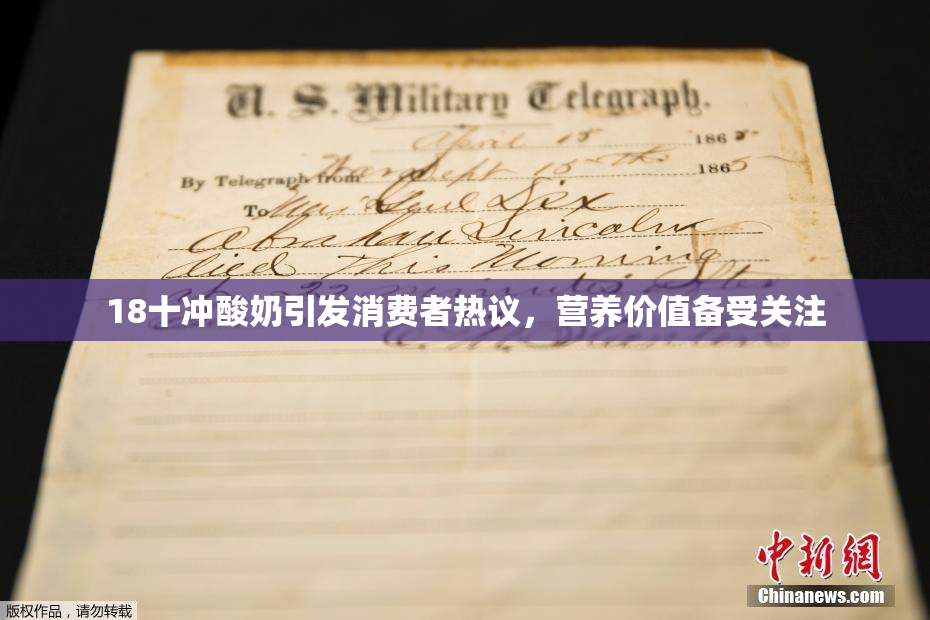 U. S. Military Telegraph.
April 15 1865
By Telegraph from War Dept 15th 1865
To Maj Genl Dix
Abraham Lincoln
died This Morning
18十冲酸奶引发消费者热议，营养价值备受关注
中新网
Chinanews.com
版权作品，请勿转载